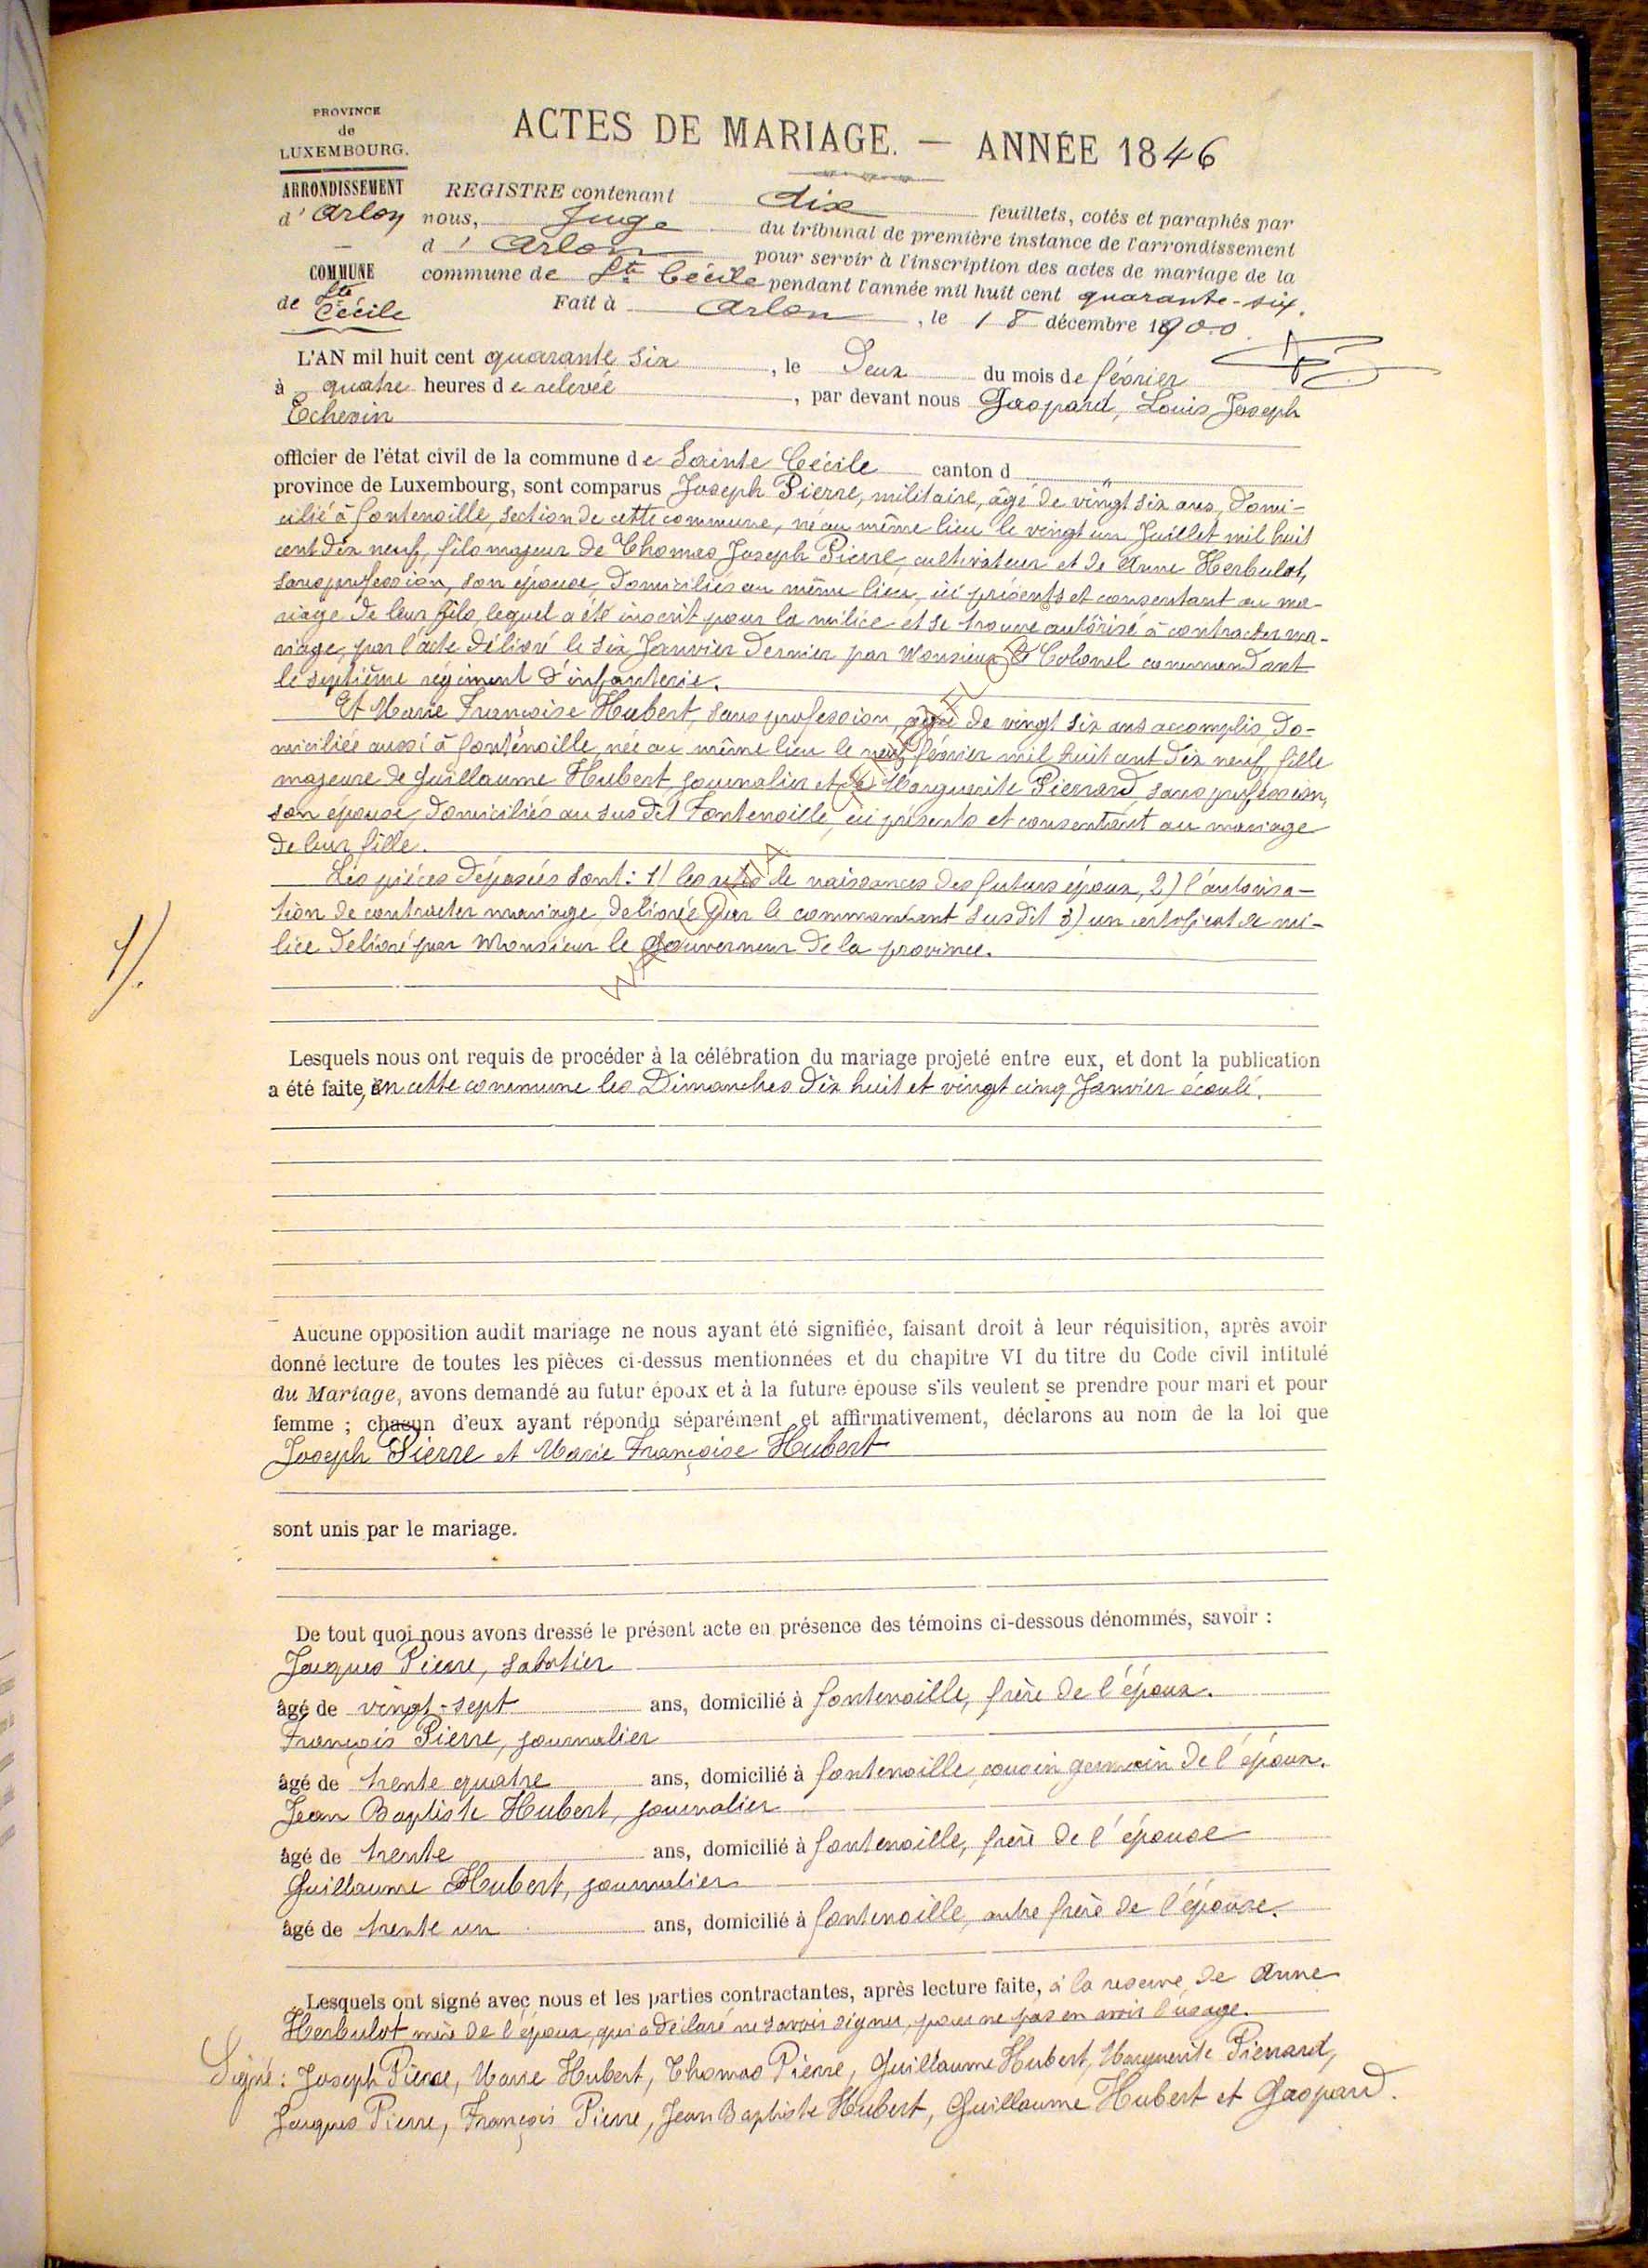 PROVINCE
de
LUXEMBOURG.
ARRONDISSEMENT
d'Arlon
COMMUNE
de Ste Cécile
ACTES DE MARIAGE. — ANNÉE 1846
REGISTRE contenant dix feuillets, cotés et paraphés par
nous, Juge du tribunal de première instance de l'arrondissement
d'Arlon pour servir à l'inscription des actes de mariage de la
commune de Ste Cécile pendant l'année mil huit cent quarante-six.
Fait à Arlon, le 18 décembre 1900.
L'AN mil huit cent quarante six, le Deux du mois de février
à quatre heures de relevée, par devant nous Gaspard, Louis Joseph
Echevin
officier de l'état civil de la commune de Sainte Cécile canton d "
province de Luxembourg, sont comparus Joseph Pierre, militaire, âgé de vingt six ans, domi-
cilié à fontenoille, section de cette commune, né au même lieu le vingt un Juillet mil huit
cent dix neuf, fils majeur de Thomas Joseph Pierre, cultivateur et de Anne Herbulot,
sans profession, son épouse, domiciliés au même lieu, ici présents et consentant au ma-
riage de leur fils, lequel a été inscrit pour la milice et se trouve autôrisé à contracter ma-
riage, par l'acte délivré le six Janvier dernier par Monsieur le Colonel commandant
le septième régiment d'infanterie.
Et Marie Françoise Hubert, sans profession, âgée de vingt six ans accomplis do-
miciliée aussi à fontenoille, née au même lieu le neuf février mil huit cent dix neuf, fille
majeure de Guillaume Hubert, journalier et de Marguerite Pierrard, sans profession,
son épouse, domiciliés au susdit Fontenoille, ici présents et consentant au mariage
de leur fille.
Les pièces déposées sont: 1) les actes de naissances des futurs époux, 2) l'autorisa-
tion de contracter mariage, delivrée par le commandant susdit 3) un certificat de mi-
lice delivré par Monsieur le Gouverneur de la province.
1/.
Lesquels nous ont requis de procéder à la célébration du mariage projeté entre eux, et dont la publication
a été faite, en cette commune les Dimanches dix huit et vingt cinq Janvier écoulé.
Aucune opposition audit mariage ne nous ayant été signifiée, faisant droit à leur réquisition, après avoir
donné lecture de toutes les pièces ci-dessus mentionnées et du chapitre VI du titre du Code civil intitulé
du Mariage, avons demandé au futur époux et à la future épouse s'ils veulent se prendre pour mari et pour
femme ; chacun d'eux ayant répondu séparément et affirmativement, déclarons au nom de la loi que
Joseph Pierre et Marie Françoise Hubert
sont unis par le mariage.
De tout quoi nous avons dressé le présent acte en présence des témoins ci-dessous dénommés, savoir :
Jacques Pierre, sabotier
âgé de vingt-sept ans, domicilié à fontenoille, frère de l'époux.
François Pierre, journalier
âgé de trente quatre ans, domicilié à fontenoille, cousin germain de l'époux.
Jean Baptiste Hubert, journalier
âgé de trente ans, domicilié à fontenoille, frère de l'épouse
Guillaume Hubert, journalier
âgé de trente un ans, domicilié à fontenoille, autre frère de l'épouse.
Lesquels ont signé avec nous et les parties contractantes, après lecture faite, à la reserve de Anne
Herbulot mère de l'époux, qui a déclaré ne savoir signer, pour ne pas en avoir l'usage.
Signé: Joseph Pierre, Marie Hubert, Thomas Pierre, Guillaume Hubert, Marguerite Pierrard,
Jacques Pierre, François Pierre, Jean Baptiste Hubert, Guillaume Hubert et Gaspard.